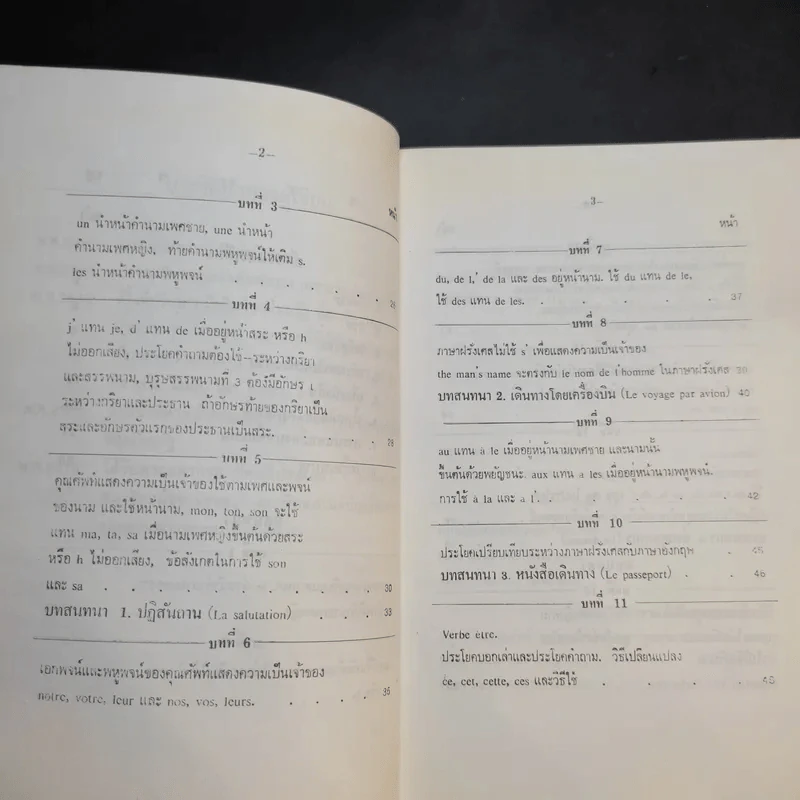 —2—
บทที่ 3
un นำหน้าคำนามเพศชาย, une นำหน้า
คำนามเพศหญิง, ท้ายคำนามพหูพจน์ให้เติม s.
les นำหน้าคำนามพหูพจน์ . . . . . .
บทที่ 4
j' แทน je, d' แทน de เมื่ออยู่หน้าสระ หรือ h
ไม่ออกเสียง, ประโยคคำถามต้องใช้–ระหว่างกริยา
และสรรพนาม, บุรุษสรรพนามที่ 3 ต้องมีอักษร t
ระหว่างกริยาและประธาน ถ้าอักษรท้ายของกริยาเป็น
สระและอักษรตัวแรกของประธานเป็นสระ. . . . 28
บทที่ 5
คุณศัพท์แสดงความเป็นเจ้าของใช้ตามเพศและพจน์
ของนาม และใช้หน้านาม, mon, ton, son จะใช้
แทน ma, ta, sa เมื่อนามเพศหญิงขึ้นต้นด้วยสระ
หรือ h ไม่ออกเสียง, ข้อสังเกตในการใช้ son
และ sa . . . . . . . . . . 30
บทสนทนา 1. ปฏิสันถาน (La salutation) . . . 33
บทที่ 6
เอกพจน์และพหูพจน์ของคุณศัพท์แสดงความเป็นเจ้าของ
notre, votre, leur และ nos, vos, leurs. . . . . 35
3—
หน้า
บทที่ 7
du, de l,' de la และ des อยู่หน้านาม. ใช้ du แทน de le.
ใช้ des แทน de les. . . . . . 37
บทที่ 8
ภาษาฝรั่งเศสไม่ใช้ s' เพื่อแสดงความเป็นเจ้าของ
the man's name จะตรงกับ le nom de l'homme ในภาษาฝรั่งเศส
บทสนทนา 2. เดินทางโดยเครื่องบิน (Le voyage par avion) 40
บทที่ 9
au แทน à le เมื่ออยู่หน้านามเพศชาย และนามนั้น
ขึ้นต้นด้วยพยัญชนะ. aux แทน a les เมื่ออยู่หน้านามพหูพจน์.
การใช้ à la และ a l'. . . . . . 42
บทที่ 10
ประโยคเปรียบเทียบระหว่างภาษาฝรั่งเศสกับภาษาอังกฤษ . 45
บทสนทนา 3. หนังสือเดินทาง (Le passeport) . . 46
บทที่ 11
Verbe être.
ประโยคบอกเล่าและประโยคคำถาม. วิธีเปลี่ยนแปลง
ce, cet, cette, ces และวิธีใช้ . . . .